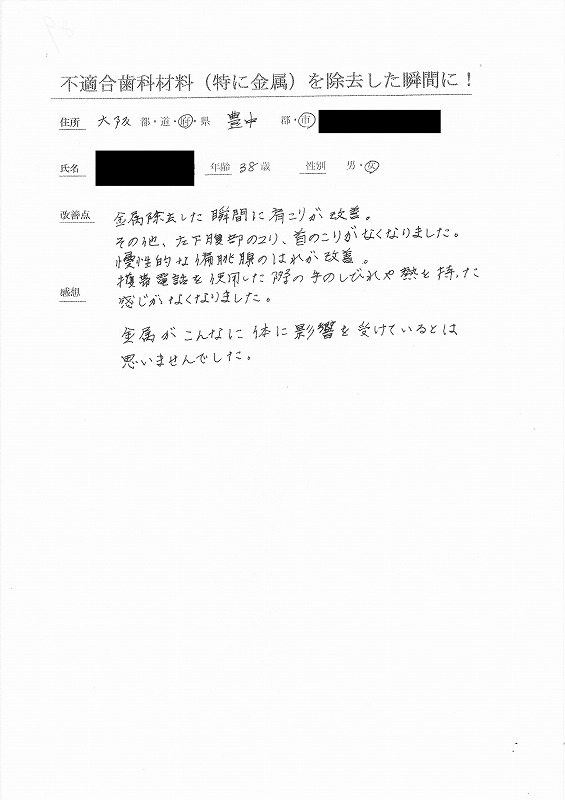 不適合歯科材料(特に金属)を除去した瞬間に!
住所 大阪 都・道・府・県 豊中 郡・市
氏名 年齢 38歳 性別 男・女
改善点 金属除去した瞬間に肩こりが改善。
その他、左下腹部のコリ、首のこりがなくなりました。
慢性的な偏桃腺のはれが改善。
携帯電話を使用した際の手のしびれや熱を持った
感想 感じがなくなりました。
金属がこんなに体に影響を受けているとは
思いませんでした。